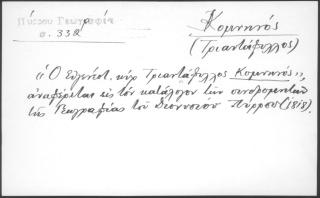 Πύρρου Γεωγραφία
σ. 332
Κομνηνός
(Τριαντάφυλλος)
"Ὁ Εὐγενέστ. κὺρ Τριαντάφυλλος Κομνηνός",
ἀναφέρεται εἰς τὸν κατάλογον τῶν συνδρομητῶν
τῆς Γεωγραφίας τοῦ Διονυσίου Πύρρου (1818).